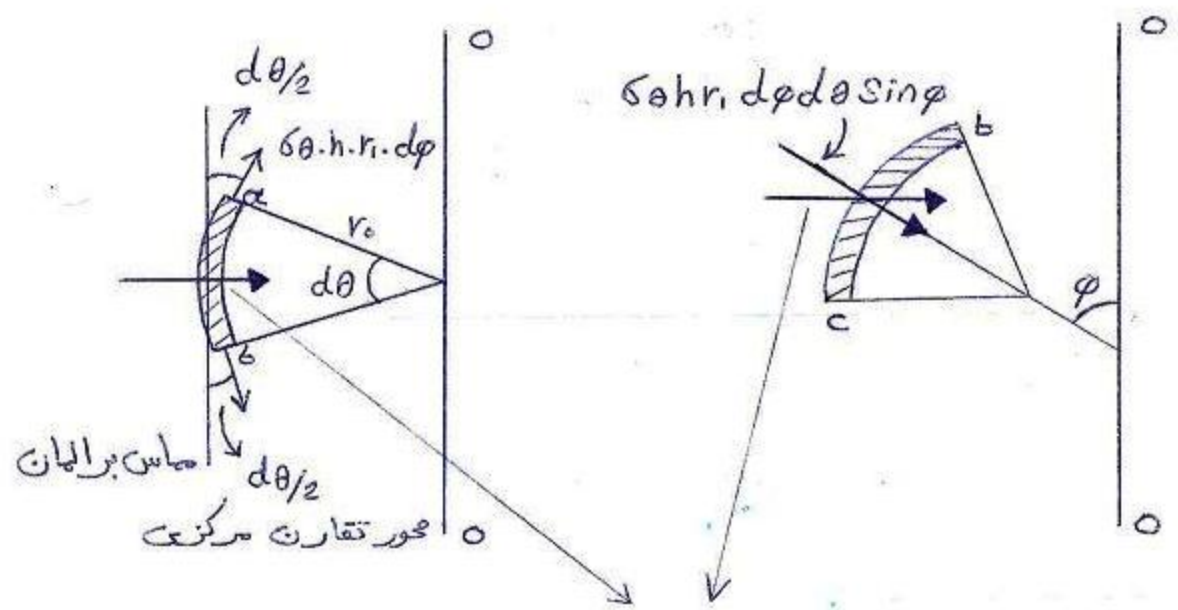 O
dθ/2
σθ.h.r₁.dφ
a
r₀
dθ
b
dθ/2
مماس بر المان
محور تقارن مرکزی
O
O
σθhr₁dφdθ Sinφ
b
c
φ
O